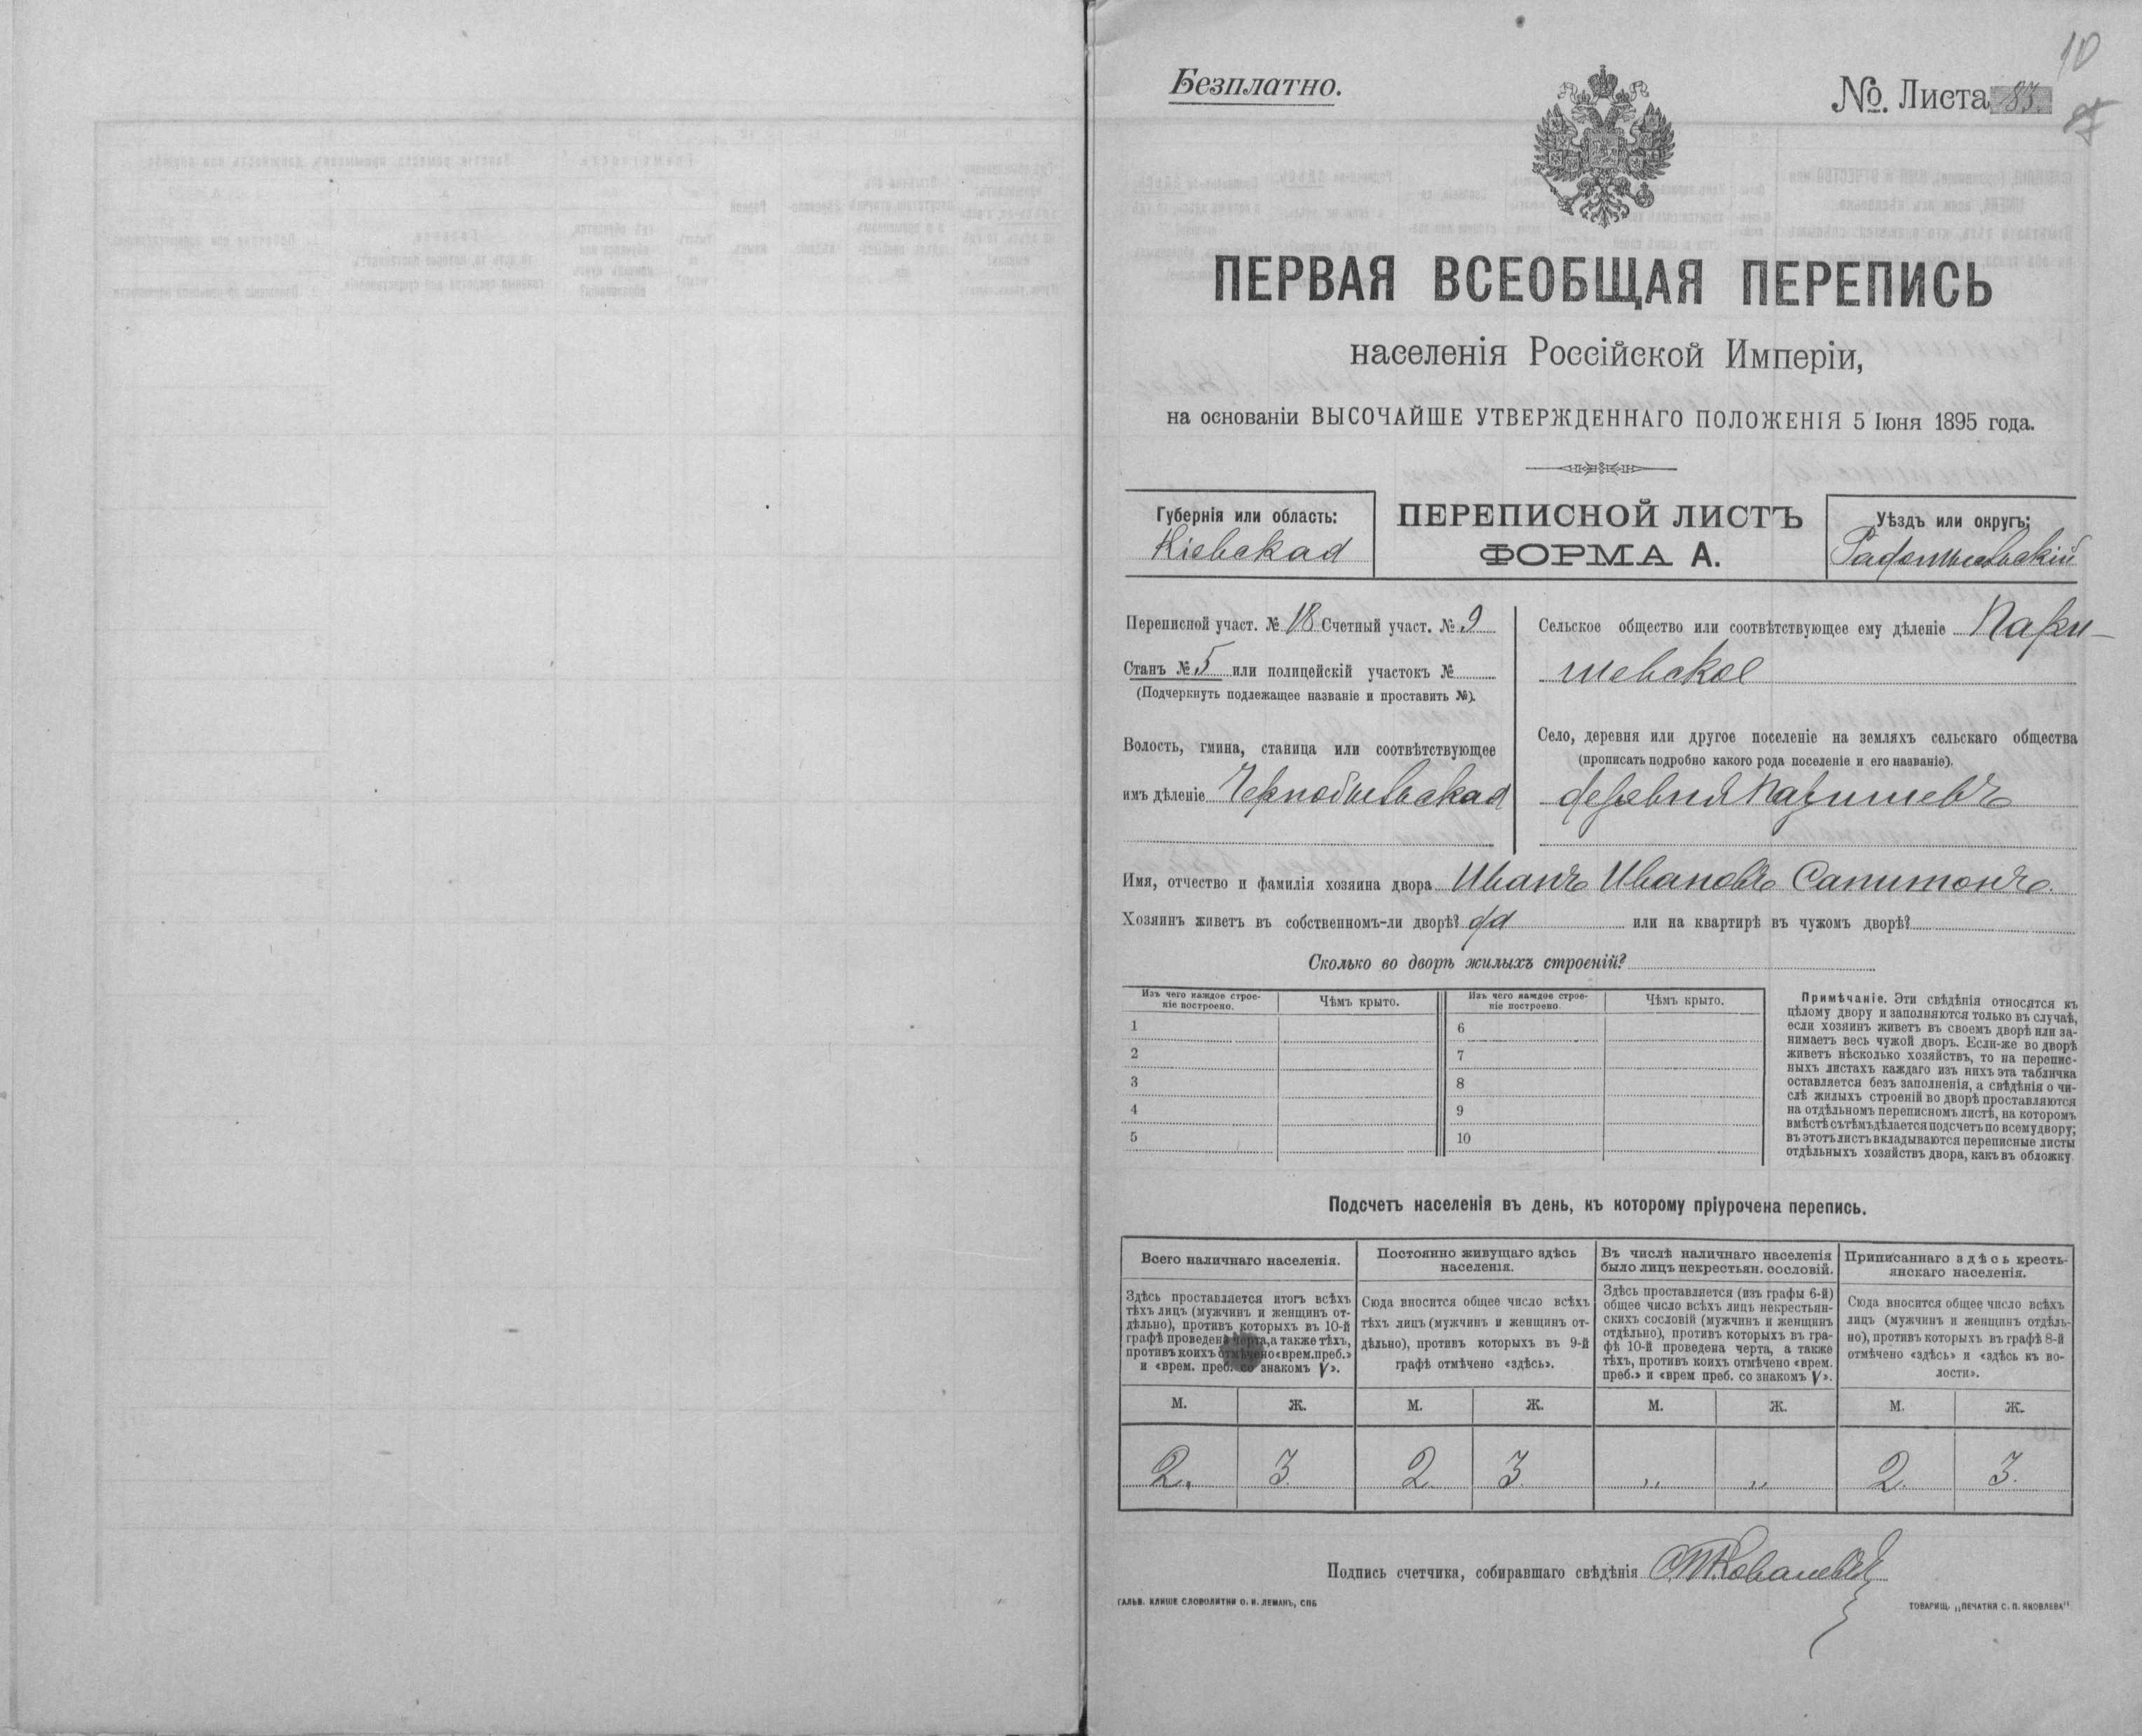 10
Безплатно.
№. Листа 83.
ПЕРВАЯ ВСЕОБЩАЯ ПЕРЕПИСЬ
населенія Россійской Имперіи,
на основаніи ВЫСОЧАЙШЕ УТВЕРЖДЕННАГО ПОЛОЖЕНІЯ 5 Іюня 1895 года.
Губернія или область:
Кіевская
ПЕРЕПИСНОЙ ЛИСТЪ
ФОРМА А.
Уѣздъ или округъ:
Радомысльскій
Переписной участ. № 18 Счетный участ. № 9
Станъ № 5 или полицейскій участокъ №
(Подчеркнуть подлежащее названіе и проставить №).
Волость, гмина, станица или соотвѣтствующее
имъ дѣленіе Чернобыльская
Сельское общество или соотвѣтствующее ему дѣленіе Пари-
шевское
Село, деревня или другое поселеніе на земляхъ сельскаго общества
(прописать подробно какого рода поселеніе и его названіе).
деревня Паришевъ
Имя, отчество и фамилія хозяина двора Иванъ Ивановъ Сапитонъ.
Хозяинъ живетъ въ собственномъ-ли дворѣ? да или на квартирѣ въ чужомъ дворѣ?
Сколько во дворѣ жилыхъ строеній?
Изъ чего каждое строе-
ніе построено.
Чѣмъ крыто.
Изъ чего каждое строе-
ніе построено.
Чѣмъ крыто.
1
6
2
7
3
8
4
9
5
10
Примѣчаніе. Эти свѣдѣнія относятся къ
цѣлому двору и заполняются только въ случаѣ,
если хозяинъ живетъ въ своемъ дворѣ или за-
нимаетъ весь чужой дворъ. Если-же во дворѣ
живетъ нѣсколько хозяйствъ, то на перепис-
ныхъ листахъ каждаго изъ нихъ эта табличка
оставляется безъ заполненія, а свѣдѣнія о чи-
слѣ жилыхъ строеній во дворѣ проставляются
на отдѣльномъ переписномъ листѣ, на которомъ
вмѣстѣ съ тѣмъ дѣлается подсчетъ по всему двору;
въ этотъ листъ вкладываются переписные листы
отдѣльныхъ хозяйствъ двора, какъ въ обложку.
Подсчетъ населенія въ день, къ которому пріурочена перепись.
Всего наличнаго населенія.
Здѣсь проставляется итогъ всѣхъ
тѣхъ лицъ (мужчинъ и женщинъ от-
дѣльно), противъ которыхъ въ 10-й
графѣ проведена черта, а также тѣхъ,
противъ коихъ отмѣчено «врем. преб.»
и «врем. преб. со знакомъ V».
Постоянно живущаго здѣсь
населенія.
Сюда вносится общее число всѣхъ
тѣхъ лицъ (мужчинъ и женщинъ от-
дѣльно), противъ которыхъ въ 9-й
графѣ отмѣчено «здѣсь».
Въ числѣ наличнаго населенія
было лицъ некрестьян. сословій.
Здѣсь проставляется (изъ графы 6-й)
общее число всѣхъ лицъ некрестьян-
скихъ сословій (мужчинъ и женщинъ
отдѣльно), противъ которыхъ въ гра-
фѣ 10-й проведена черта, а также
тѣхъ, противъ коихъ отмѣчено «врем.
преб.» и «врем преб. со знакомъ V».
Приписаннаго здѣсь кресть-
янскаго населенія.
Сюда вносится общее число всѣхъ
лицъ (мужчинъ и женщинъ отдѣль-
но), противъ которыхъ въ графѣ 8-й
отмѣчено «здѣсь» и «здѣсь къ во-
лости».
М. Ж. М. Ж. М. Ж. М. Ж.
2. 3. 2 3. „ „ 2. 3.
Подпись счетчика, собиравшаго свѣдѣнія
ГАЛЬВ. КЛИШЕ СЛОВОЛИТНИ О. И. ЛЕМАНЪ, СПБ
ТОВАРИЩ. „ПЕЧАТНЯ С. П. ЯКОВЛЕВА“.